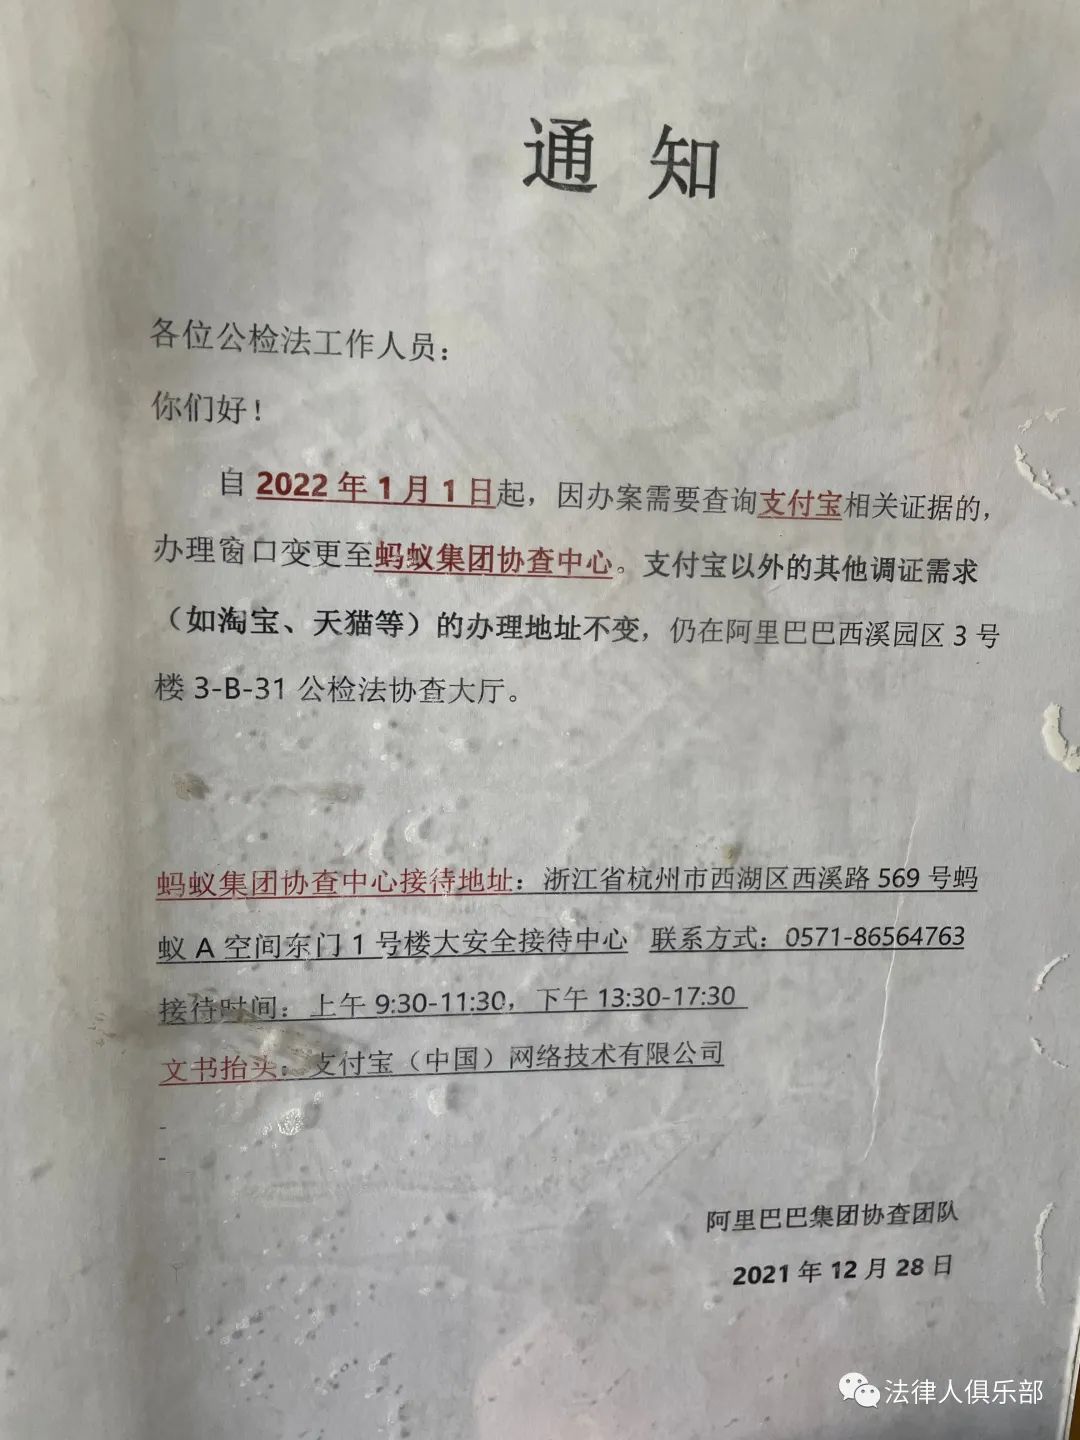 通知
各位公检法工作人员：
你们好！
自 2022 年 1 月 1 日起，因办案需要查询支付宝相关证据的，
办理窗口变更至蚂蚁集团协查中心。支付宝以外的其他调证需求
（如淘宝、天猫等）的办理地址不变，仍在阿里巴巴西溪园区 3 号
楼 3-B-31 公检法协查大厅。
蚂蚁集团协查中心接待地址：浙江省杭州市西湖区西溪路 569 号蚂
蚁 A 空间东门 1 号楼大安全接待中心 联系方式：0571-86564763
接待时间：上午 9:30-11:30，下午 13:30-17:30
文书抬头：支付宝（中国）网络技术有限公司
-
-
阿里巴巴集团协查团队
2021 年 12 月 28 日
法律人俱乐部